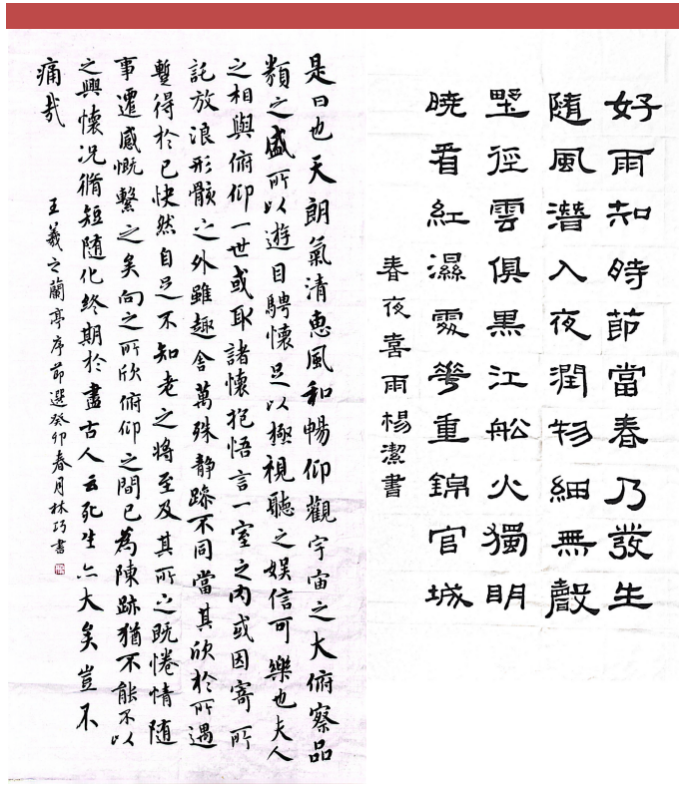 好雨知時節當春乃發生
隨風潛入夜潤物細無聲
野徑雲俱黑江船火獨明
曉看紅濕處花重錦官城
春夜喜雨楊潔書
是日也天朗氣清惠風和暢仰觀宇宙之大俯察品
類之盛所以遊目騁懷足以極視聽之娛信可樂也夫人
之相與俯仰一世或取諸懷抱悟言一室之內或因寄所
託放浪形骸之外雖趣舍萬殊靜躁不同當其欣於所遇
暫得於己快然自足不知老之將至及其所之既惓情隨
事遷感慨繫之矣向之所欣俯仰之間已為陳跡猶不能不以
之興懷況脩短隨化終期於盡古人云死生亦大矣豈不
痛哉
王羲之蘭亭序節選癸卯春月林巧書